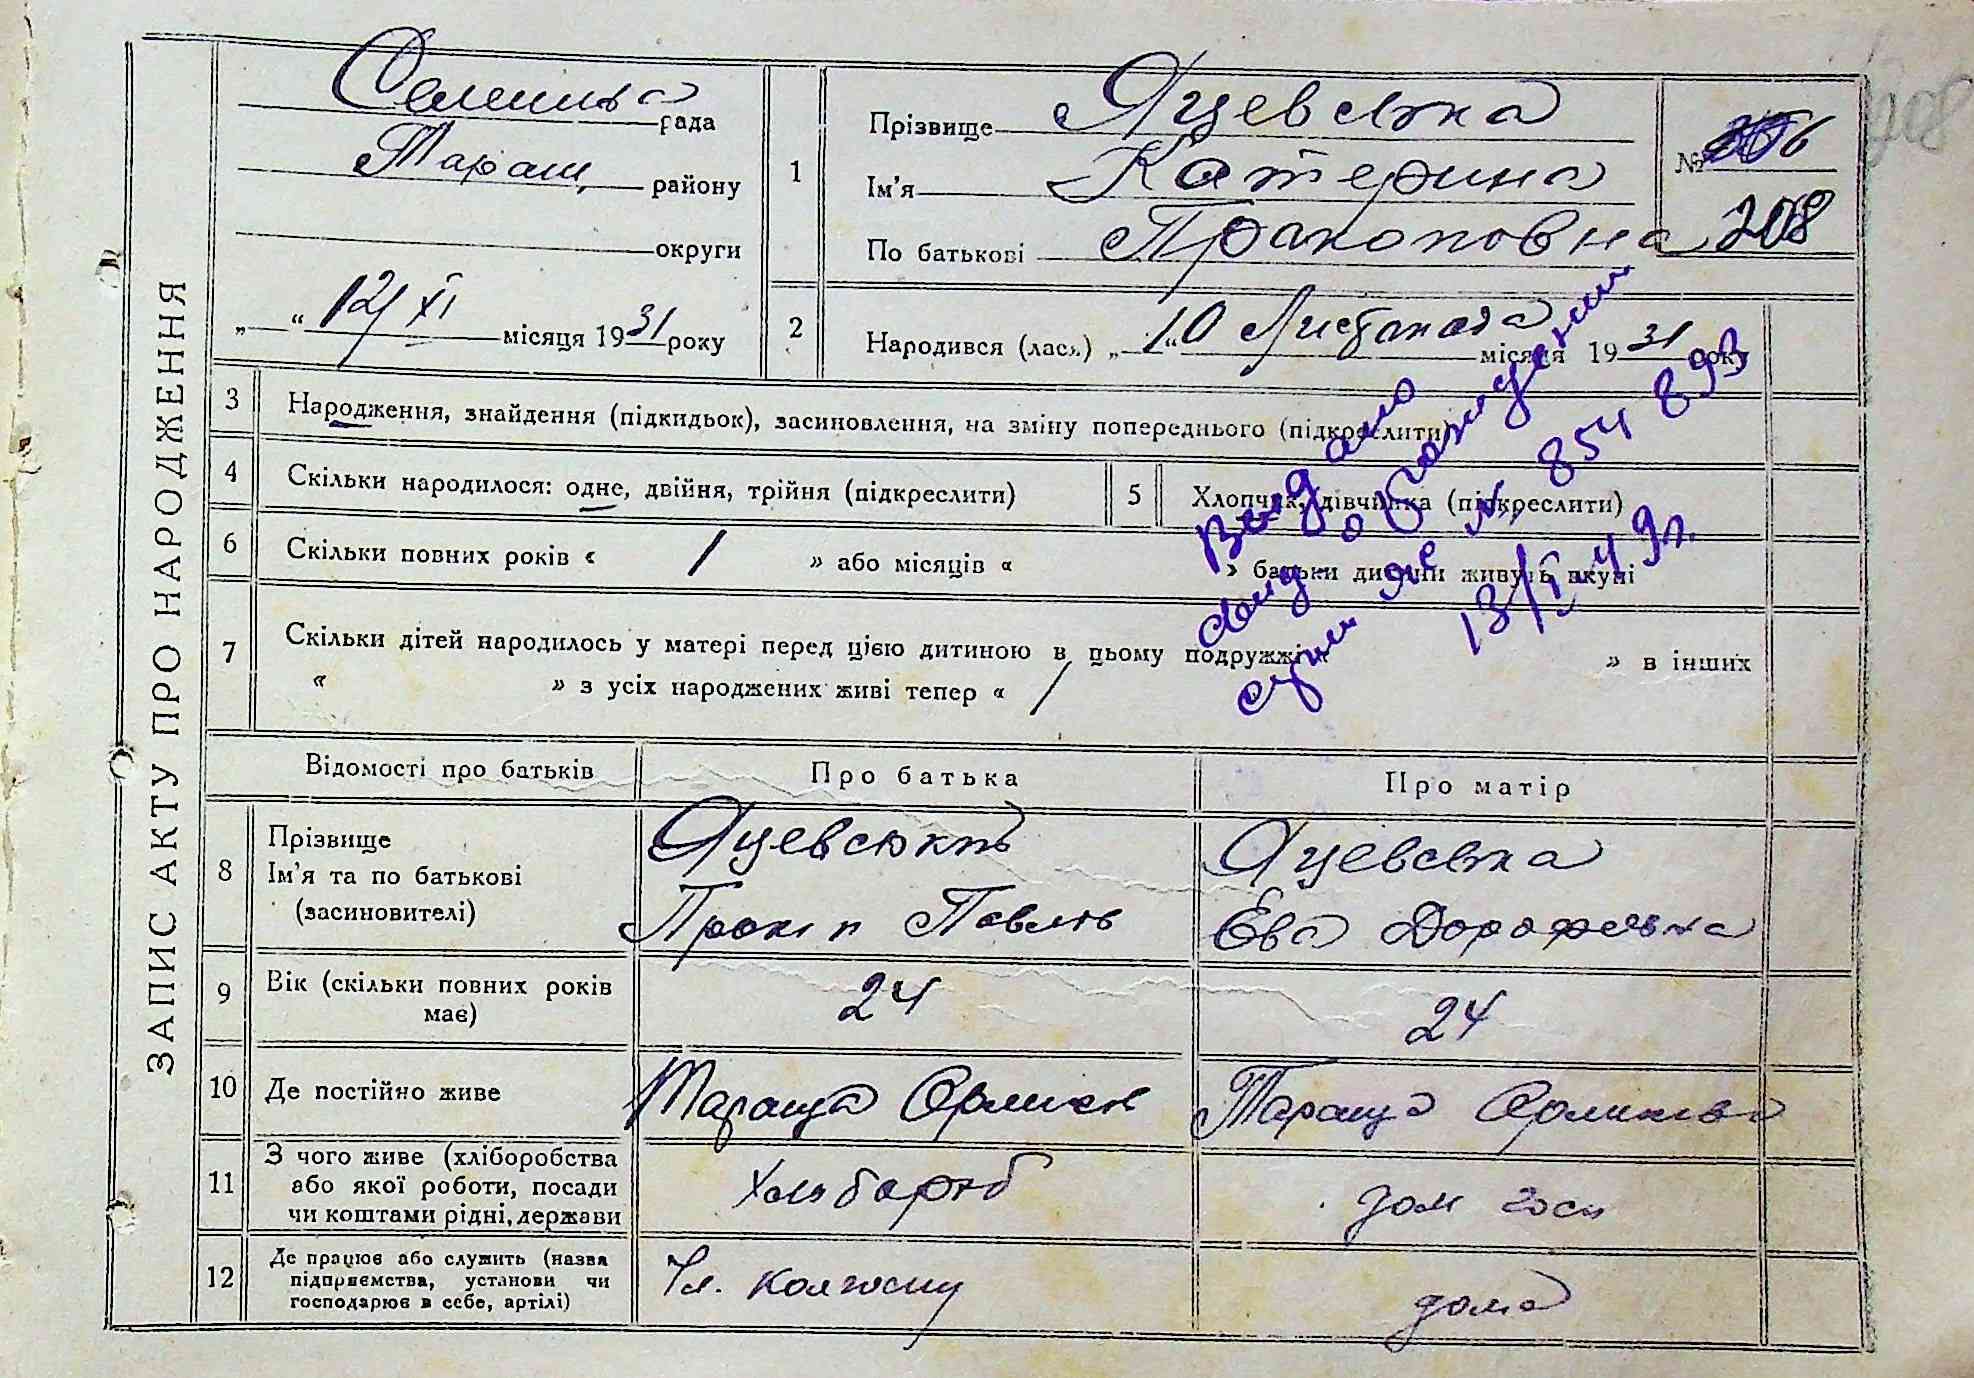 ЗАПИС АКТУ ПРО НАРОДЖЕННЯ
Селищна рада
Таращ. району
округи
„ “ 12/XI місяця 1931 року
1
Прізвище Яцевська
Ім'я Катерина
По батькові Прокоповна
№
208
208
2
Народився (лась) „10“ Листопада місяця 1931 року
3
Народження, знайдення (підкидьок), засиновлення, на зміну попереднього (підкреслити)
4
Скільки народилося: одне, двійня, трійня (підкреслити)
5
Хлопчик, дівчинка (підкреслити)
6
Скільки повних років « / » або місяців « » батьки дитини живуть вкупі
7
Скільки дітей народилось у матері перед цією дитиною в цьому подружжі « » в інших
« » з усіх народжених живі тепер « /
Видано
свид. о рождении
серии № 854893
13/I 49г.
Відомості про батьків
Про батька
Про матір
8
Прізвище
Ім'я та по батькові
(засиновителі)
Яцевський
Прокіп Павлов
Яцевська
Ева Дорофеевна
9
Вік (скільки повних років
має)
24
24
10
Де постійно живе
Тараща
Тараща
11
З чого живе (хліборобства
або якої роботи, посади
чи коштами рідні, держави
Хльбороб
дом госп
12
Де працює або служить (назва
підприємства, установи чи
господарює в себе, артілі)
Чл. колгоспу
дома